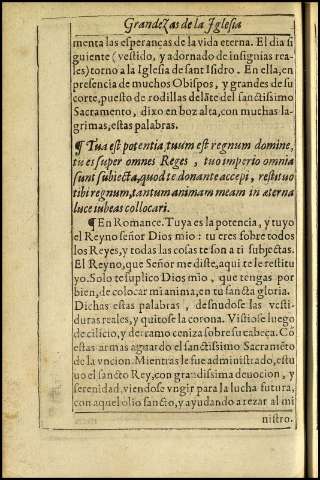 Grandezas de la Iglesia
menta las esperanças de la vida eterna. El dia si
guiente (vestido, y adornado de insignias rea-
les) torno a la Iglesia de sant Isidro. En ella, en
presencia de muchos Obispos, y grandes de su
corte, puesto de rodillas delãte del sanctissimo
Sacramento, dixo en boz alta, con muchas la-
grimas, estas palabras.
¶ Tua est potentia, tuum est regnum domine,
tu es super omnes Reges, tuo imperio omnia
sunt subiecta, quod te donante accepi, restituo
tibi regnum, tantum animam meam in æterna
luce iubeas collocari.
¶ En Romance. Tuya es la potencia, y tuyo
el Reyno señor Dios mio: tu eres sobre todos
los Reyes, y todas las cosas te son a ti subjectas.
El Reyno, que Señor me diste, aqui te le restitu
yo. Solo te suplico Dios mio, que tengas por
bien, de colocar mi anima, en tu sancta gloria.
Dichas estas palabras, desnudose las vesti-
duras reales, y quitose la corona. Vistiose luego
de cilicio, y derramo ceniza sobre su cabeça. Cõ
estas armas aguardo el sanctissimo Sacramẽto
de la vncion. Mientras le fue administrado, estu
uo el sancto Rey, con grandissima deuocion, y
serenidad, viendose vngir para la lucha futura,
con aquel olio sancto, y ayudando a rezar al mi
nistro.